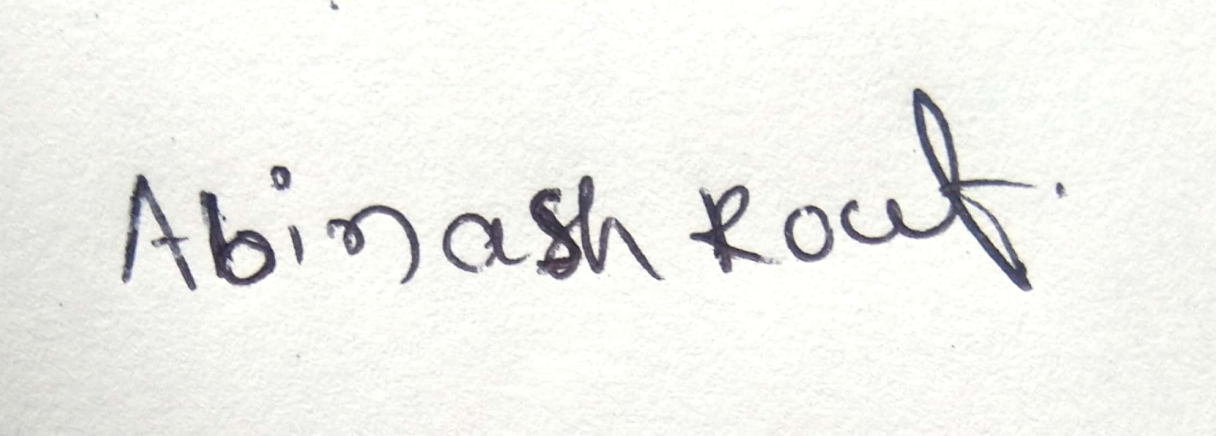 Abinash Rout.